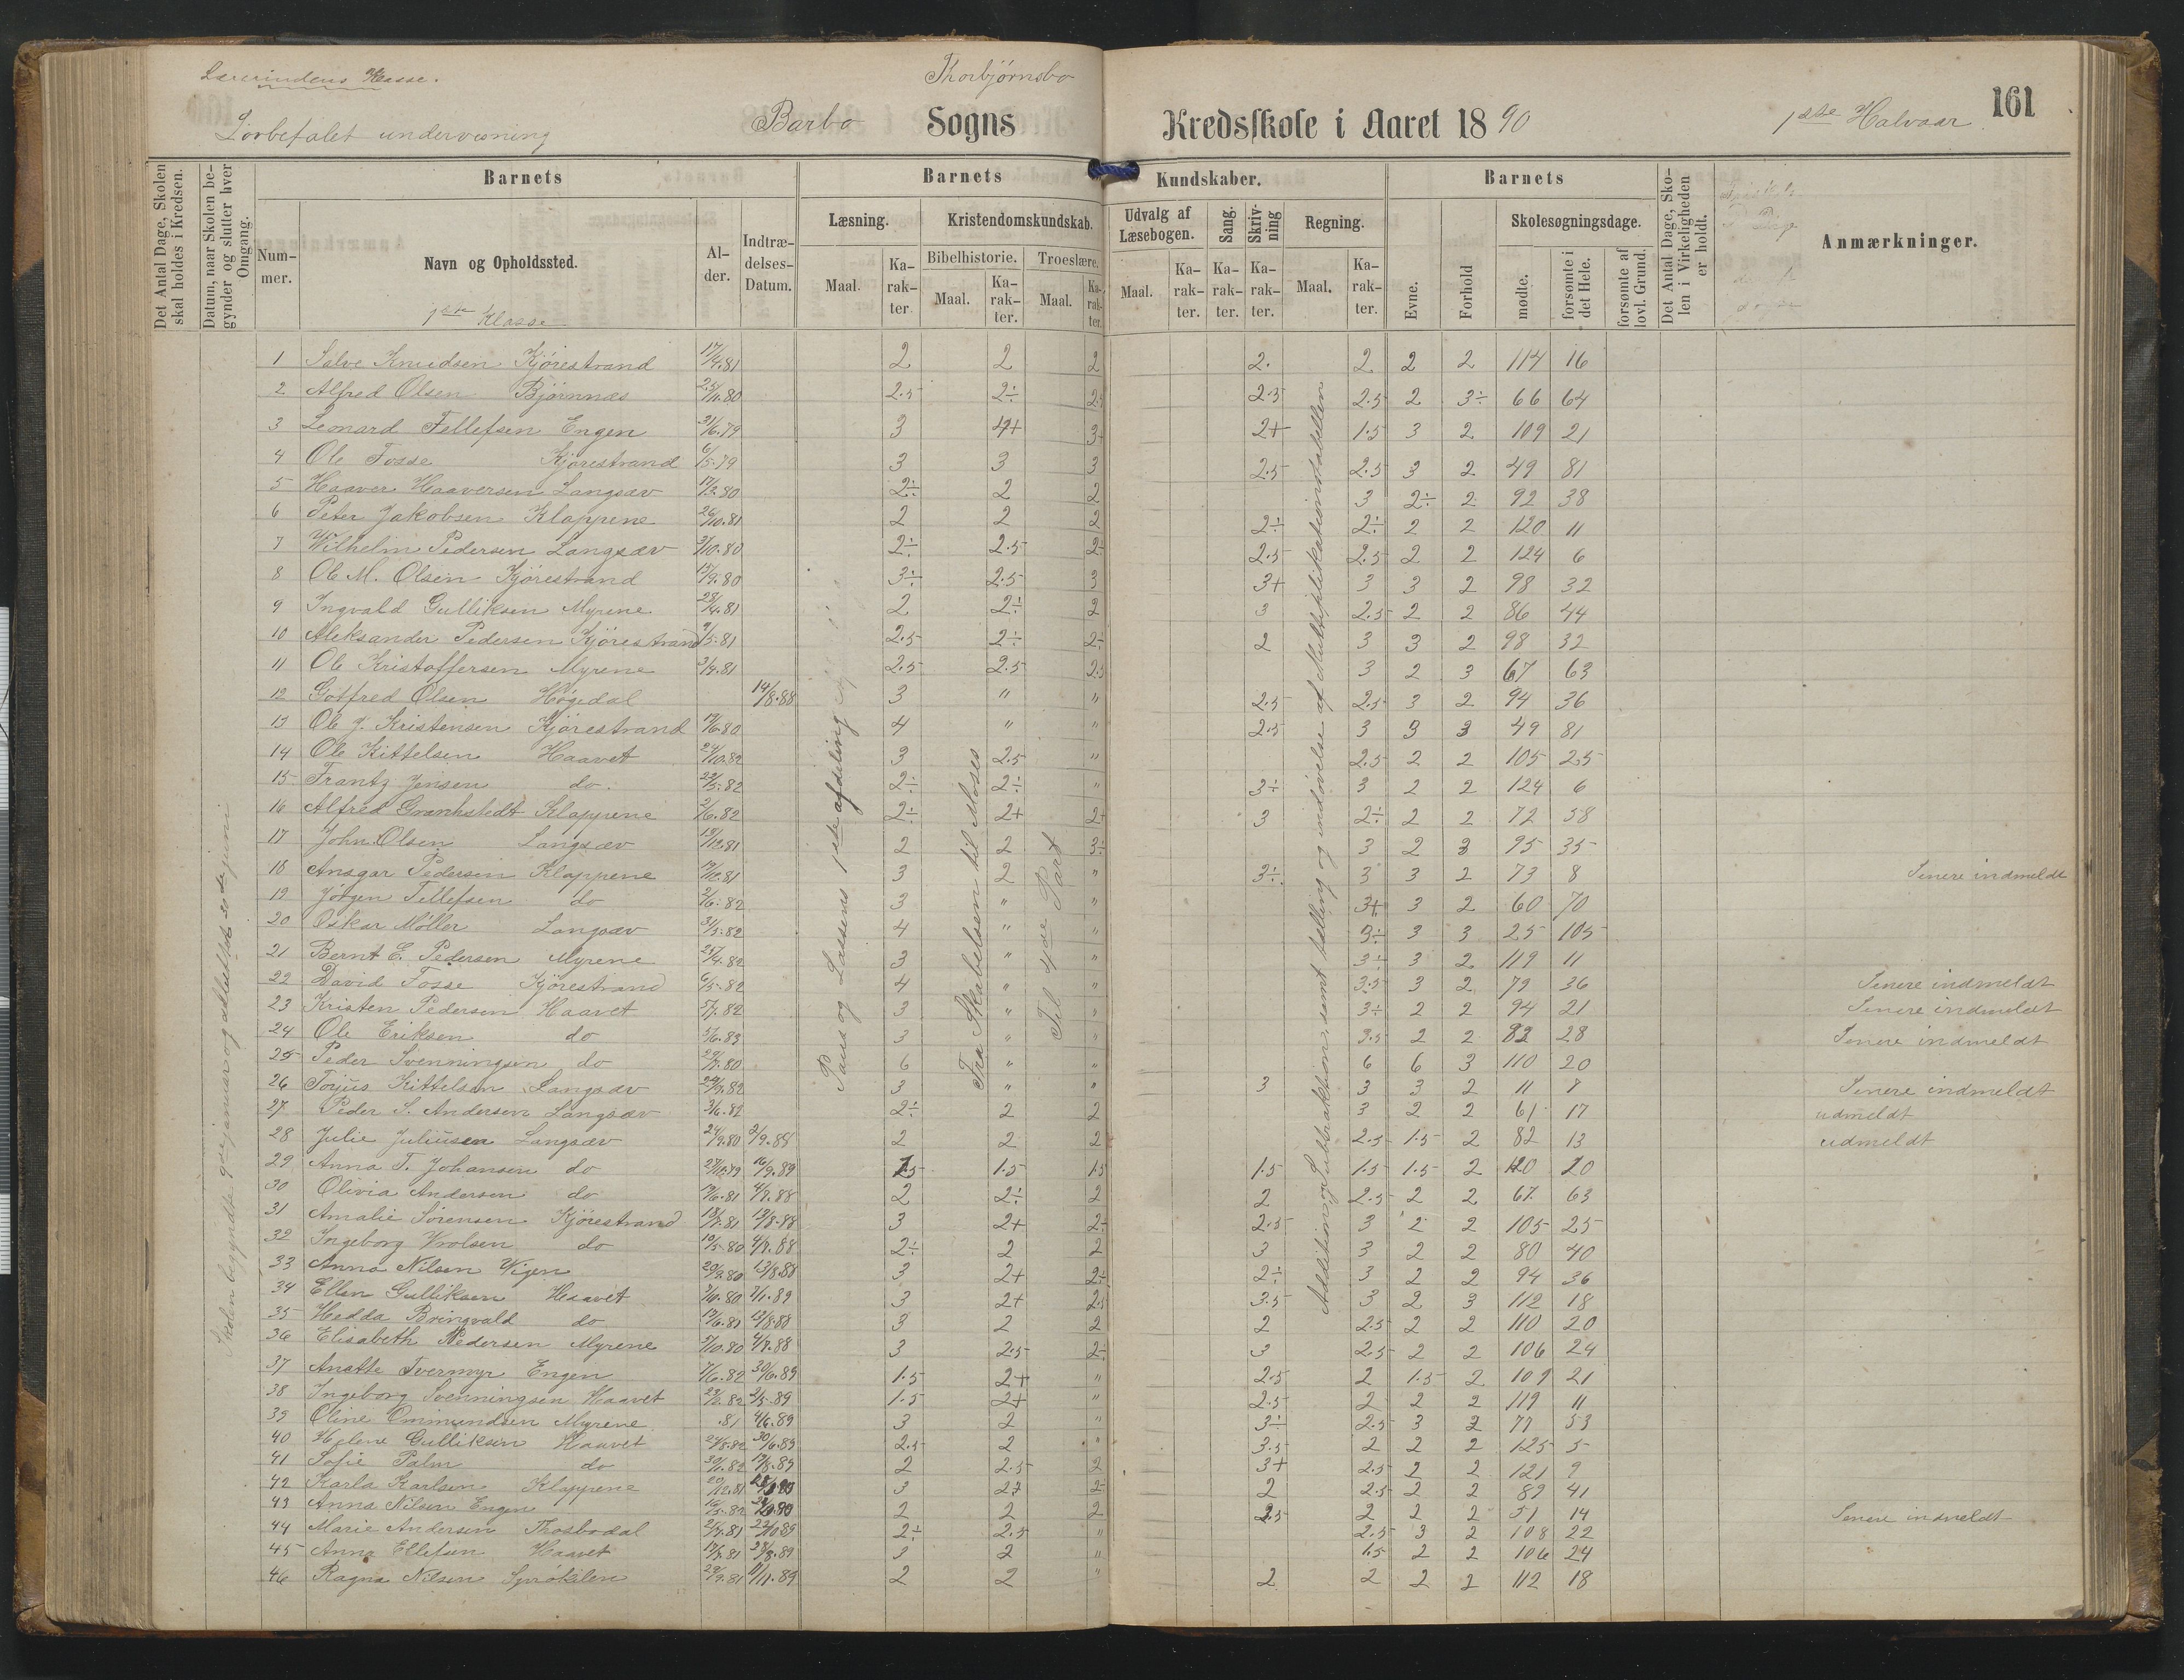 Lærerindens Klasse. Thorbjørnsbo
Lovbefalet undervisning Barbo Sogns Kredsskole i Aaret 1890 1ste Halvaar 161
Det Antal Dage, Skolen skal holdes i Kredsen.
Datum, naar Skolen begynder og slutter hver Omgang.
Barnets Barnets Kundskaber. Barnets
Nummer. Navn og Opholdssted. Alder. Indtrædelses-Datum.
Læsning. Kristendomskundskab. Udvalg af Læsebogen. Sang. Skrivning Regning. Evne. Forhold Skolesøgningsdage.
Bibelhistorie. Troeslære.
Maal. Karakter. Maal. Karakter. Maal. Karakter. Maal. Karakter. Karakter. Karakter. Maal. Karakter. mødte. forsømte i det Hele. forsømte af lovl. Grund.
Det Antal Dage, Skolen i Virkeligheden er holdt.
Anmærkninger.
1ste Klasse
Skolen begyndte 9de januar og sluttet 20de juni
Paus og Lassens 1ste afdeling
Fra Skabelsen til Moses
Til 4de Part
Addition, Subtraktion, samt tælling og indøvelse af Multiplikationstabellen
1 Salve Knudsen Kjørestrand 17/4.81 2 2 2 2. 2 2 2 114 16
2 Alfred Olsen Bjørnnæs 23/11.80 2.5 2÷ 2.5 2.5 2.5 2 3÷ 66 64
3 Leonard Tellefsen Engen 31/6.79 3 4+ 3+ 2+ 1.5 3 2 109 21
4 Ole Fosse Kjørestrand 6/5.79 3 3 3 2.5 2.5 3 2 49 81
5 Haaver Haaversen Langsæv 17/3.80 2÷ 2 2 3 2÷ 2 92 38
6 Peter Jakobsen Klappene 26/10.81 2 2 2 2÷ 2÷ 2 2 120 11
7 Wilhelm Pedersen Langsæv 3/10.80 2÷ 2.5 2÷ 2.5 2.5 2 2 124 6
8 Ole M. Olsen Kjørestrand 15/9.80 3÷ 2.5 3 3+ 3 3 2 98 32
9 Ingvald Gulliksen Myrene 28/4.81 2 2÷ 2 3 2.5 2 2 86 44
10 Aleksander Pedersen Kjørestrand 9/5.81 2.5 2÷ 2÷ 2 3 3 2 98 32
11 Ole Kristoffersen Myrene 3/9.81 2.5 2.5 2.5 3 2 3 67 63
12 Gotfred Olsen Høgedal 14/8.88 3 " " 2.5 2.5 3 2 94 36
13 Ole J. Kristensen Kjørestrand 19/6.80 4 " " 2.5 3 3 3 49 81
14 Ole Kittelsen Haavet 24/10.82 3 2.5 " 2.5 2 2 105 25
15 Frantz Jensen do. 22/5.82 2÷ 2÷ " 3÷ 3 2 2 124 6
16 Alfred Klappene 2/6.82 2÷ 2+ 2+ 3 2÷ 2 2 72 58
17 John Olsen Langsæv 13/12.81 2 2 3÷ 3 2 3 95 35
18 Ansgar Pedersen Klappene 19/12.81 3 2 " 3÷ 3 3 2 73 8 Senere indmeldt
19 Jørgen Tellefsen do 2/6.82 3 " " 3+ 3 2 60 70
20 Oskar Møller Langsæv 31/5.82 4 " " 3÷ 3 3 25 105
21 Bernt E. Pedersen Myrene 25/4.82 3 " " 3÷ 3 2 119 11
22 David Fosse Kjørestrand 6/5.82 4 " " 3.5 3 2 79 36 Senere indmeldt
23 Kristen Pedersen Haavet 5/7.82 3 " " 3÷ 2 2 94 21 Senere indmeldt
24 Ole Eriksen do 5/6.83 3 " " 3.5 2 2 82 28 Senere indmeldt
25 Peder Svenningsen do 29/7.80 6 " " 6 6 3 110 20
26 Torjus Kittelsen Langsæv 29/3.82 3 " " 3 3 3 2 11 8 Senere indmeldt
27 Peder S. Andersen Langsæv 3/6.82 2÷ 2 2 3 2 2 61 17 udmeldt
28 Julie Juliusen Langsæv 24/9.80 3/9.88 2 2 2 2.5 1.5 2 82 13 udmeldt
29 Anna T. Johansen do 27/10.79 16/9.89 1.5 1.5 1.5 1.5 1.5 1.5 2 120 20
30 Olivia Andersen do 19/6.81 4/8.88 2 2÷ 2 2 2.5 2 2 67 63
31 Amalie Sørensen Kjørestrand 18/7.81 13/8.88 3 2+ 2÷ 2.5 3 2 2 105 25
32 Ingeborg Vrolsen do 10/5.80 4/8.88 2÷ 2 2 3 3 2 2 80 40
33 Anna Nilsen Vigen 20/9.80 13/8.88 3 2+ 2÷ 2÷ 3 2 2 94 36
34 Ellen Gulliksen Haavet 3/6.80 3/1.89 3 2+ 2.5 3.5 3 2 3 112 18
35 Hedda Bringvald do 17/6.81 13/8.88 3 2 2 2 2.5 2 2 110 20
36 Elisabeth Pedersen Myrene 5/10.80 4/8.88 3 2.5 2÷ 3 2.5 2 2 106 24
37 Anette Tvermyr Engen 7/6.82 30/6.89 1.5 2+ " 2.5 2 1.5 2 109 21
38 Ingeborg Svenningsen Haavet 23/2.82 2/5.89 1.5 2+ " 2.5 2 2 2 119 11
39 Oline Ommundsen Myrene .81 4/6.89 3 2 " 3÷ 2.5 3 2 77 53
40 Helene Gulliksen Haavet 29/8.82 30/6.89 2.5 2 " 3.5 2 2 2 125 5
41 Sofie Palm do 30/6.82 17/8.89 2 2.5 2 3+ 2.5 2 2 121 9
42 Karla Karlsen Klappene 20/12.81 3 2+ 2÷ 2 2.5 2 2 89 41
43 Anna Nilsen Engen 16/5.82 2 2 2 2.5 2 2 2 51 14 Senere indmeldt
44 Marie Andersen Thosbodal 25/7.81 22/10.89 2÷ 2.5 " 2.5 3 2 108 22
45 Anna Ellefsen Haavet 17/3.81 28/8.89 3 2 " 1.5 2 2 106 24
46 Ragna Nilsen 29/9.81 11/11.89 2 2 " 2 2 2 2 112 18